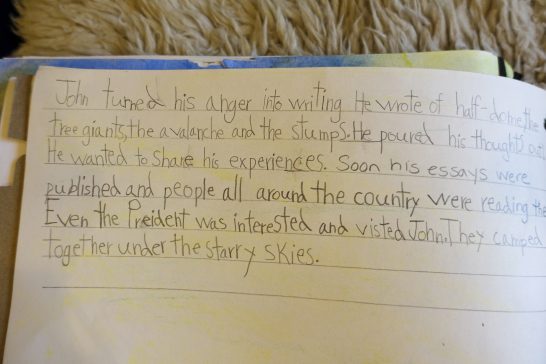 John turned his anger into writing. He wrote of half-dome, the
tree giants, the avalanche and the stumps. He poured his thoughts out.
He wanted to share his experiences. Soon his essays were
published and people all around the country were reading the
Even the Preident was interested and visted John. They camped
together under the starry skies.